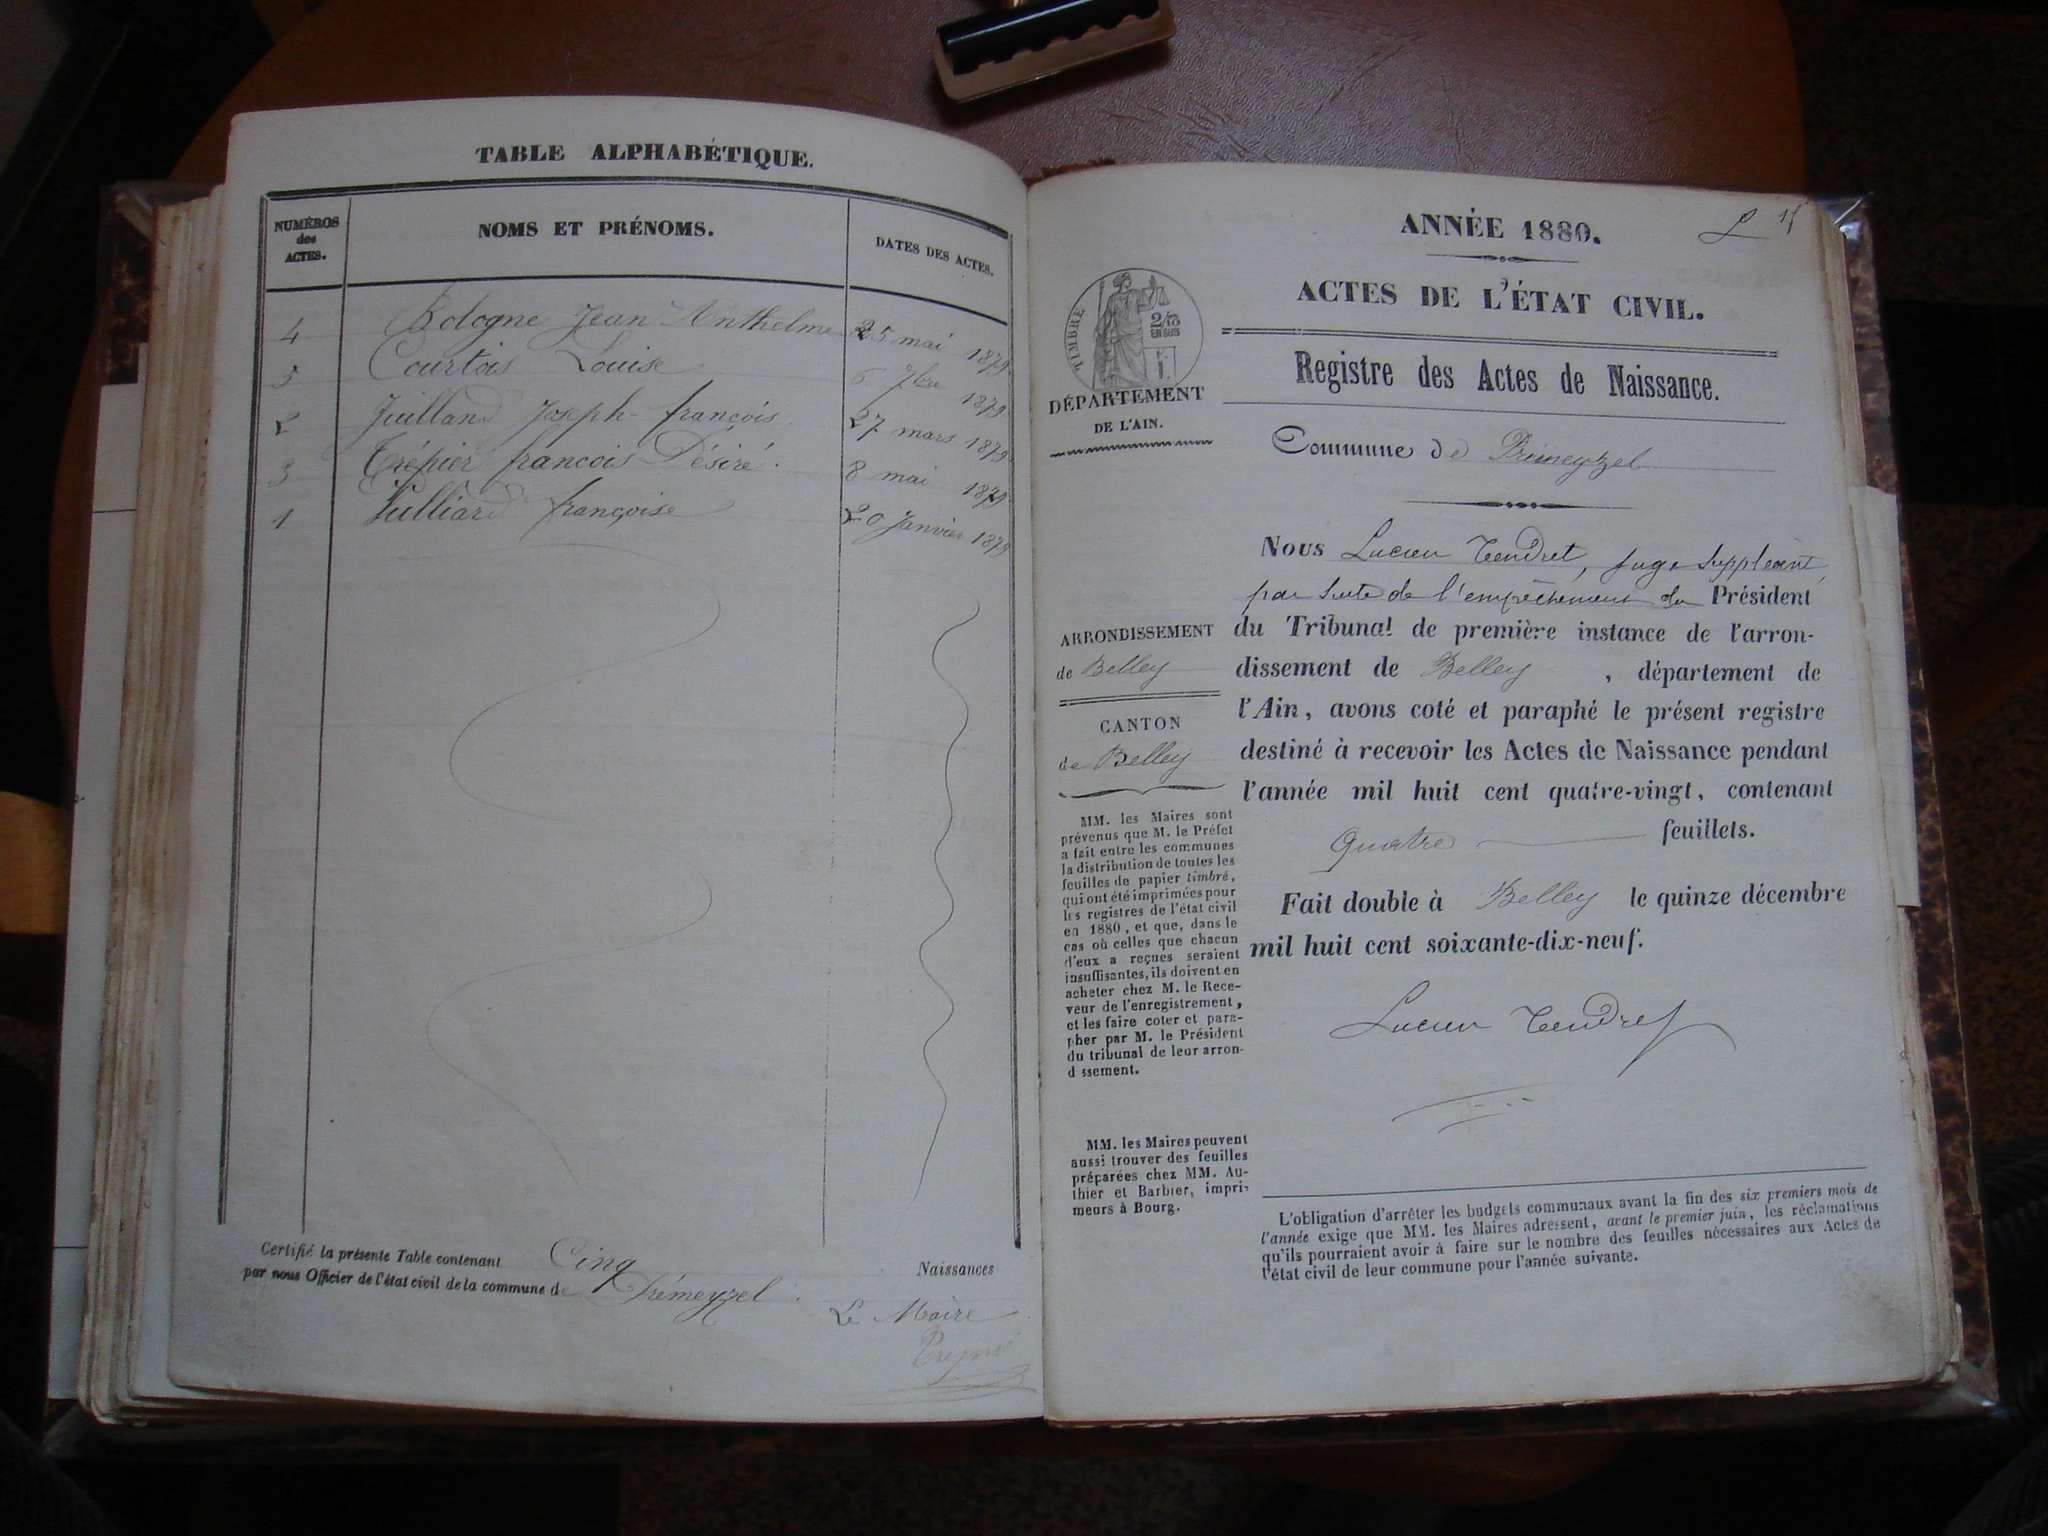 TABLE ALPHABÉTIQUE.
NUMÉROS des ACTES.
NOMS ET PRÉNOMS.
DATES DES ACTES.
4 Bologne Jean Anthelme 25 mai 1879
5 Courtois Louise 6 7bre 1879
2 Juilland Joseph-françois 27 mars 1879
3 Trépier francois Désiré. 8 mai 1879
1 Vulliard françoise 20 Janvier 1879
Certifié la présente Table contenant Cinq Naissances
par nous Officier de l'état civil de la commune de Prémeyzel.
Le Maire
ANNÉE 1880.
ACTES DE L'ÉTAT CIVIL.
Registre des Actes de Naissance.
TIMBRE
2/10 EN SUS
DÉPARTEMENT
DE L'AIN.
Commune de Prémeyzel
Nous Lucien Tendret, Juge Suppléant,
par suite de l'empêchement du Président
du Tribunal de première instance de l'arron-
dissement de Belley, département de
l'Ain, avons coté et paraphé le présent registre
destiné à recevoir les Actes de Naissance pendant
l'année mil huit cent quatre-vingt, contenant
Quatre feuillets.
Fait double à Belley le quinze décembre
mil huit cent soixante-dix-neuf.
Lucien Tendret
ARRONDISSEMENT
de Belley
CANTON
de Belley
MM. les Maires sont
prévenus que M. le Préfet
a fait entre les communes
la distribution de toutes les
feuilles de papier timbré,
qui ont été imprimées pour
les registres de l'état civil
en 1880, et que, dans le
cas où celles que chacun
d'eux a reçues seraient
insuffisantes, ils doivent en
acheter chez M. le Rece-
veur de l'enregistrement,
et les faire coter et para-
pher par M. le Président
du tribunal de leur arron-
d ssement.
MM. les Maires peuvent
aussi trouver des feuilles
préparées chez MM. Au-
thier et Barbier, impri-
meurs à Bourg.
L'obligation d'arrêter les budgets communaux avant la fin des six premiers mois de
l'année exige que MM. les Maires adressent, avant le premier juin, les réclamations
qu'ils pourraient avoir à faire sur le nombre des feuilles nécessaires aux Actes de
l'état civil de leur commune pour l'année suivante.